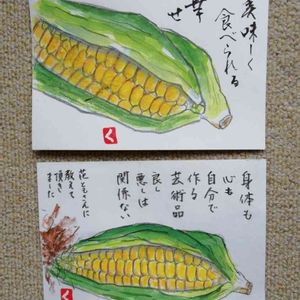 美味しく
食べられる
幸せ
く
身体も
心も
自分で
作る
芸術品
良し
悪しは
関係ない
花ともさんに
教えて
頂き
ました
く